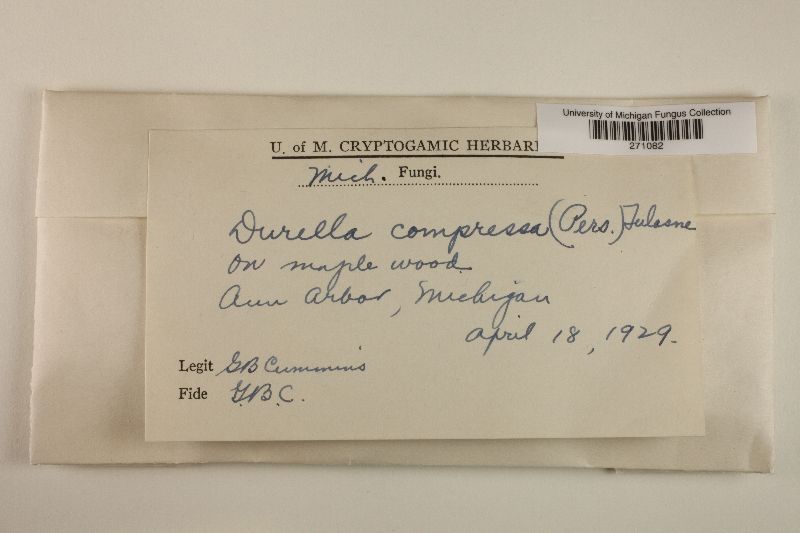 University of Michigan Fungus Collection
271082
U. of M. CRYPTOGAMIC HERBARI
Mich. Fungi.
Durella compressa (Pers.) Tulasne
on maple wood.
Ann Arbor, Michigan
April 18, 1929.
Legit GB Cummins
Fide G.B.C.